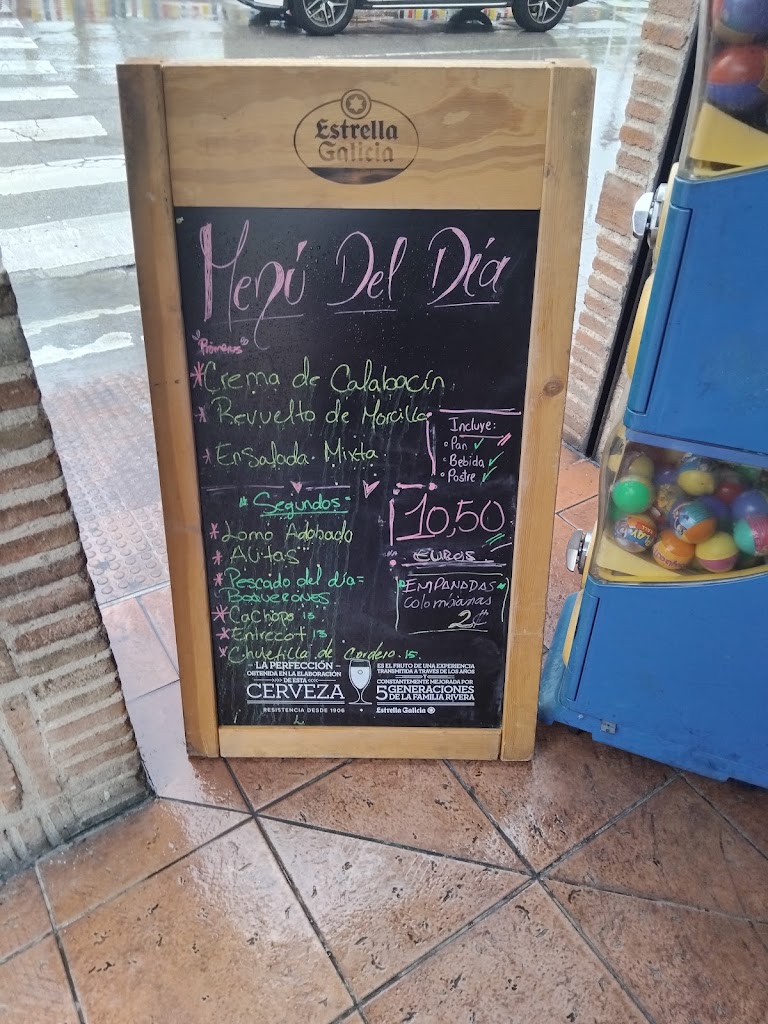 Estrella
Galicia
Menú Del Día
"Primeros"
*Crema de Calabacín
*Revuelto de Morcilla
*Ensalada Mixta
Incluye:
Pan ✓
Bebida ✓
Postre ✓
Segundos
*Lomo Adobado
*Alitas
*Pescado del día=
Boquerones
*Cachopo 15
*Entrecot 15
*Chuletilla de Cordero 15.
10,50
euros
EMPANADAS
Colombianas
2€
LA PERFECCIÓN
OBTENIDA EN LA ELABORACIÓN
DE ESTA
CERVEZA
RESISTENCIA DESDE 1906
ES EL FRUTO DE UNA EXPERIENCIA
TRANSMITIDA A TRAVÉS DE LOS AÑOS
Y
CONSTANTEMENTE MEJORADA POR
5 GENERACIONES
DE LA FAMILIA RIVERA
Estrella Galicia